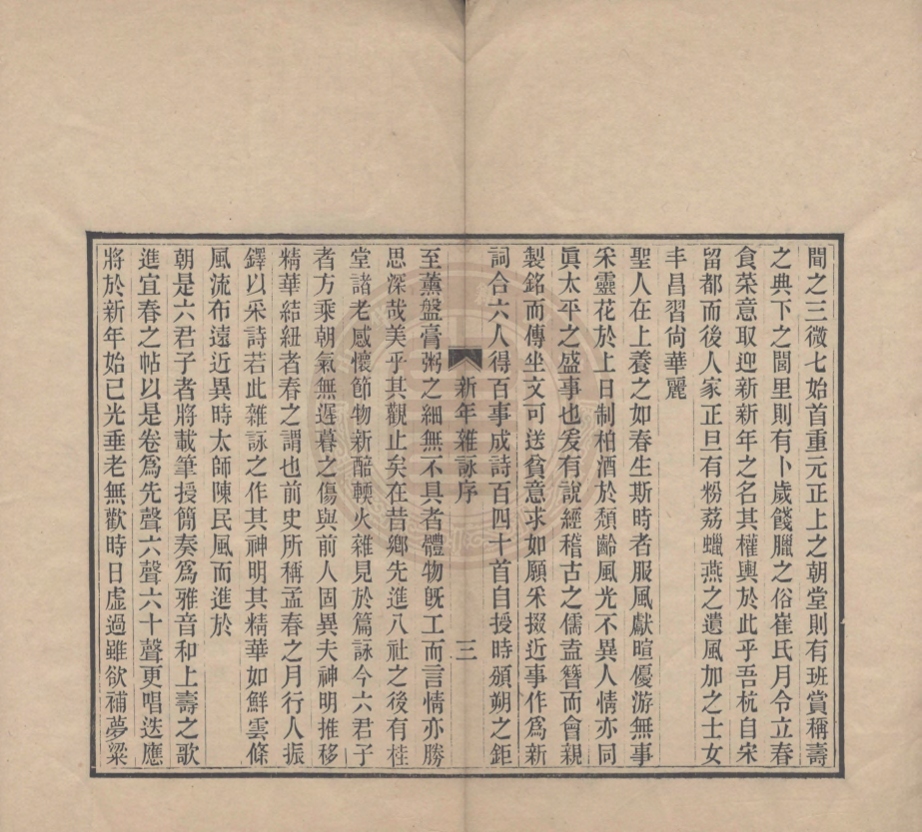 間之三微七始首重元正上之朝堂則有班賞稱壽
之典下之閭里則有卜歲餞臘之俗崔氏月令立春
食菜意取迎新新年之名其權輿於此乎吾杭自宋
留都而後人家正旦有粉荔蠟燕之遺風加之士女
丰昌習尙華麗
聖人在上養之如春生斯時者服風獻暄優游無事
采靈花於上日制柏酒於頹齡風光不異人情亦同
眞太平之盛事也爰有說經稽古之儒盍簪而會親
製銘而傳坐文可送貧意求如願采掇近事作爲新
詞合六人得百事成詩百四十首自授時頒朔之鉅
新年雜詠序
三
至薰盤膏粥之細無不具者體物旣工而言情亦勝
思深哉美乎其觀止矣在昔鄉先進八社之後有桂
堂諸老感懷節物新醅輭火雜見於篇詠今六君子
者方乘朝氣無遲暮之傷與前人固異夫神明推移
精華結紐者春之謂也前史所稱孟春之月行人振
鐸以采詩若此雜詠之作其神明其精華如鮮雲條
風流布遠近異時太師陳民風而進於
朝是六君子者將載筆授簡奏爲雅音和上壽之歌
進宜春之帖以是卷爲先聲六聲六十聲更唱迭應
將於新年始已光垂老無歡時日虛過雖欲補夢粱